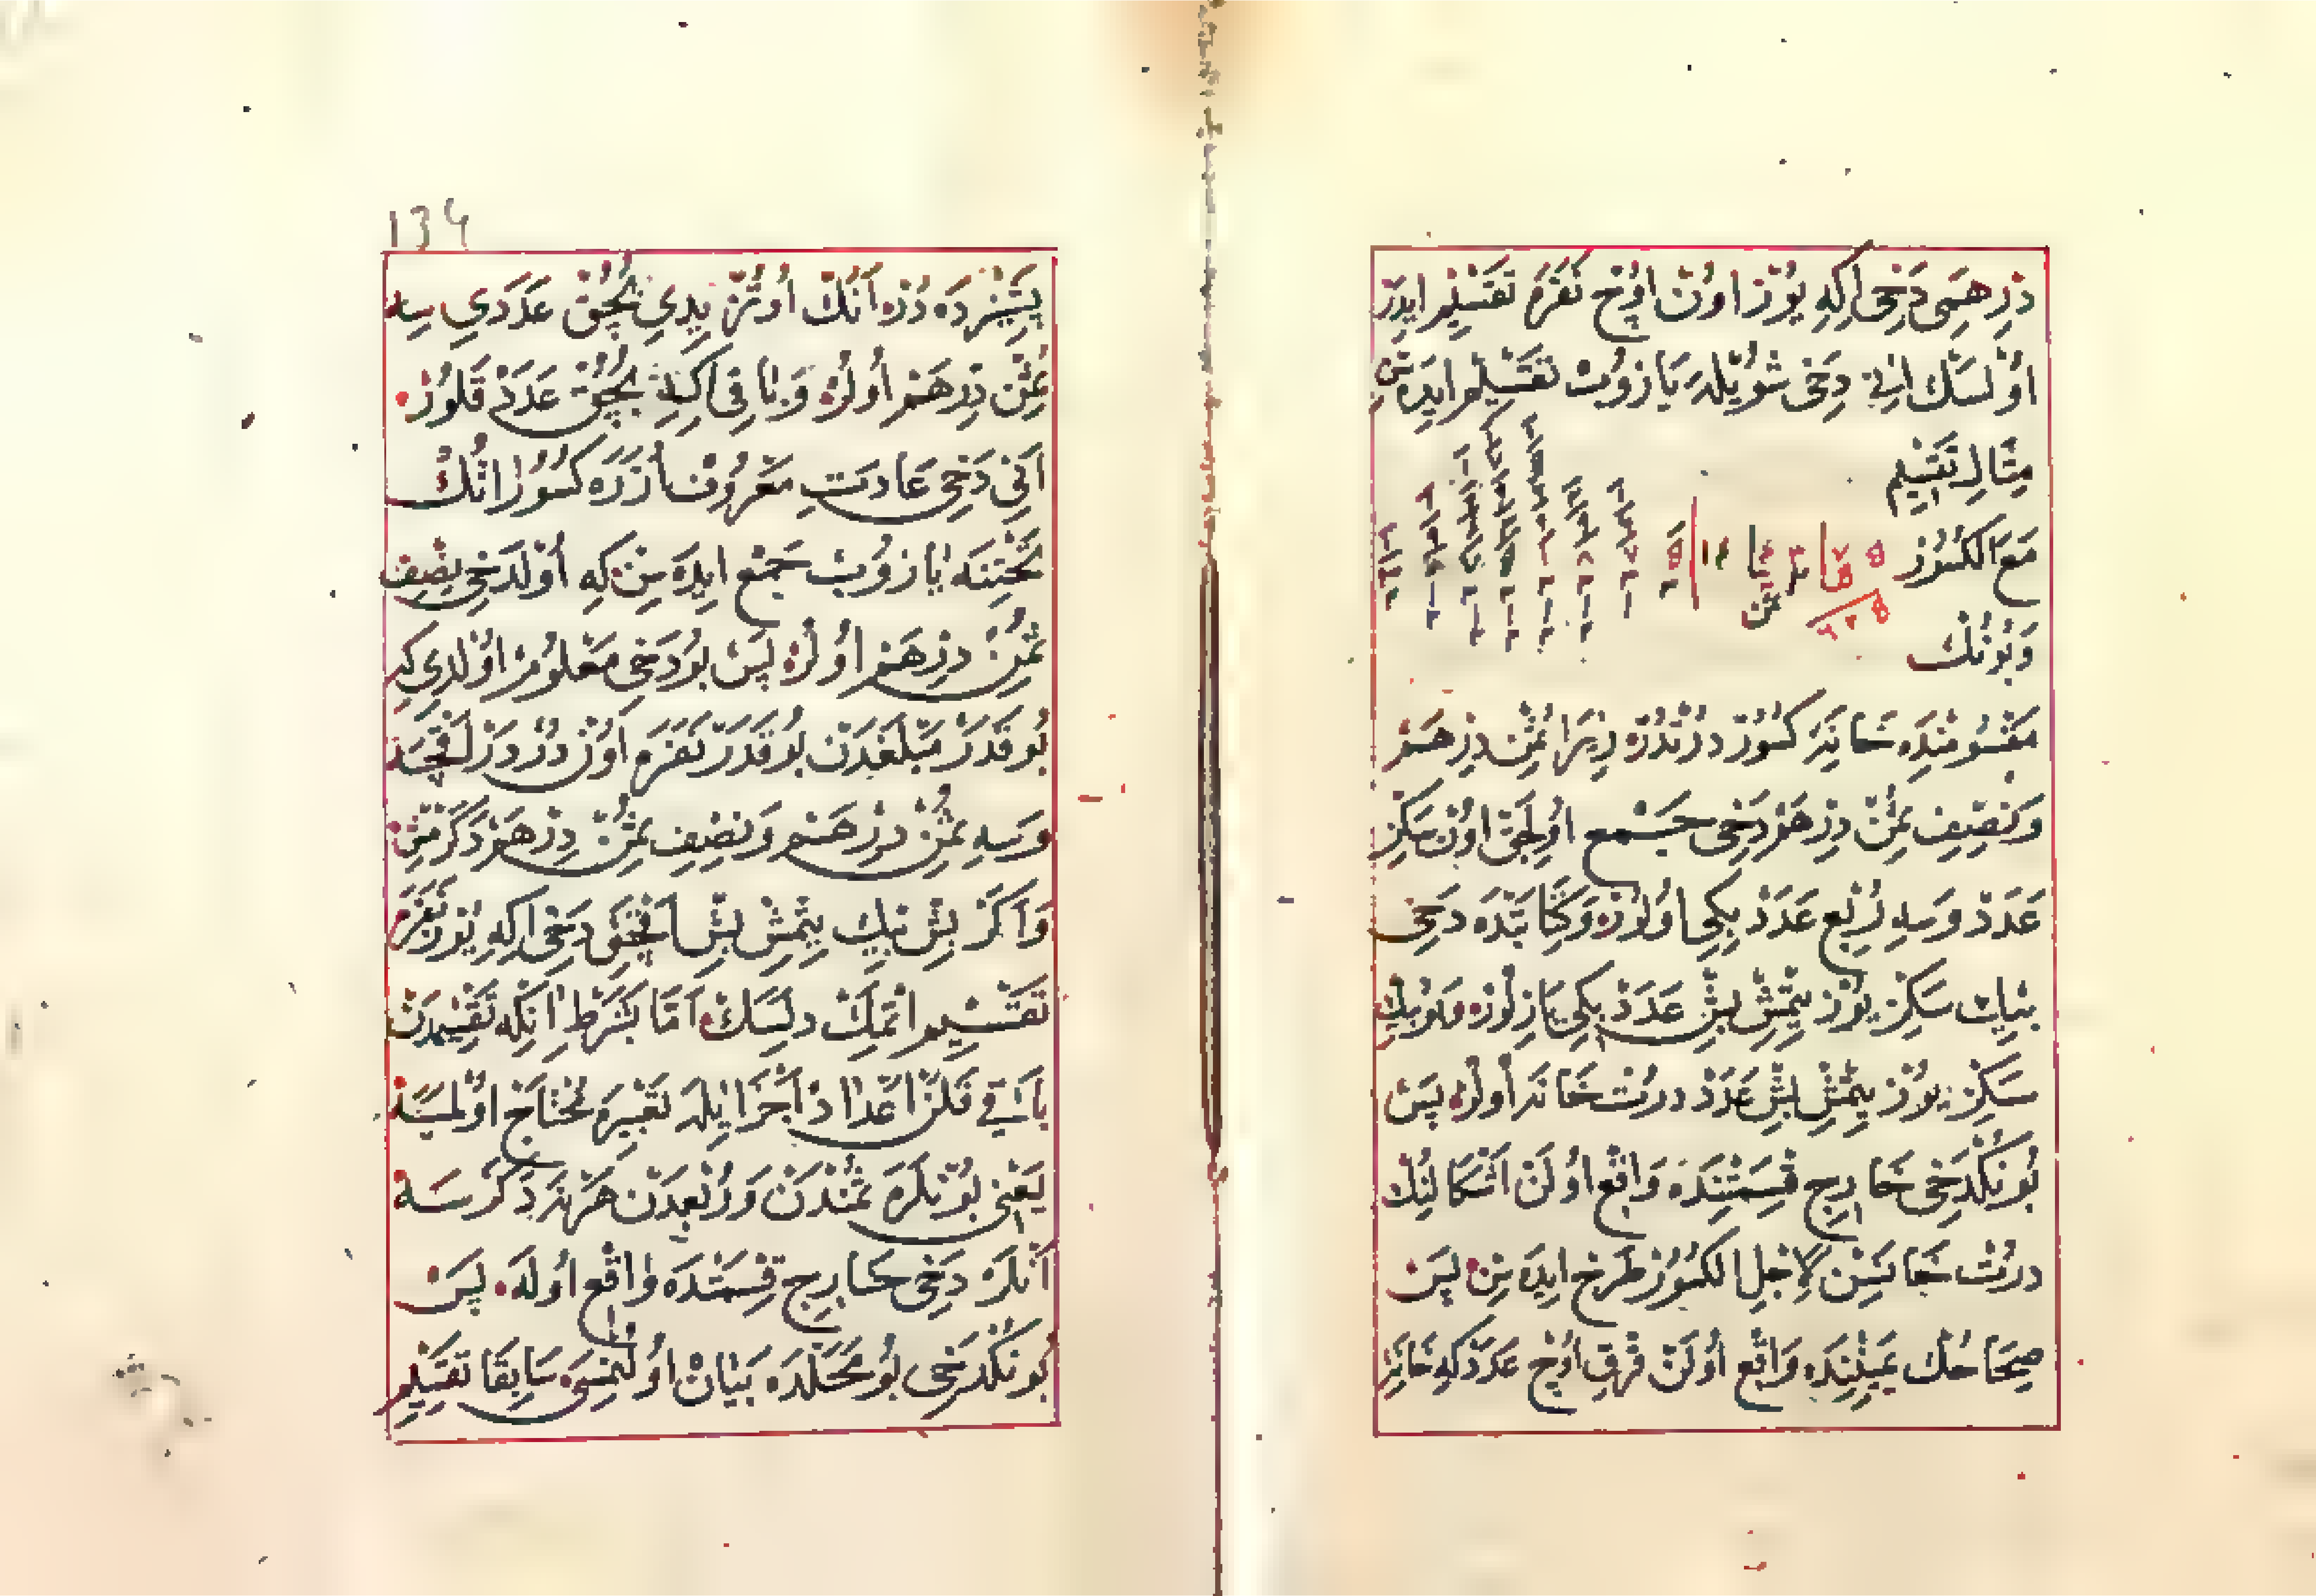 درهمی دخی ایکه یوز اون اوچ نفره تقسیم ایدر
اولسك انی دخی شویله یازوب تقسیم ایده سن
مثال تقسیم
مع الکسور
وبونك
مقسومنده خانه کسور درتدر زیرا ثمن درهم
ونصف ثمن درهم دخی جمع اولیجق اون سکز
عدد وسه ربع عدد بکی اولور وکتابتده دخی
بیك سکز یوز یتمش بش عدد بکی یازلور وبو بیك
سکز یوز یتمش بش عدد درت خانه اولور پس
بونکدخی خارج قسمتنده واقع اولن اشکالنك
درت خانه سن لاجل الکسور طرح ایده سن پس
صحاحك یمیننده واقع اولن فرق اوچ عدد که خانه
134
یتیزده در انك اوتز یدی بچق عددی سه
ثمن درهم اولور وباقی ایکی بچق عدد قلور
انی دخی عادت معروف اوزره کسور انك
تحتنه یازوب جمع ایده سن که اولدخی نصف
ثمن درهم اولور پس بو دخی معلوم اولدی که
بو قدر مبلغدن بو قدر نفره اون دردر اقچه
وسه ثمن درهم ونصف ثمن درهم دکرمش
واکر بش بیك یتمش بش اقچه یی دخی ایکه یوز نفره
تقسیم اتمك دلسك اما بشرط انکه تقسیمدن
باقی قلن اعداد اجزا ایله تعبیره محتاج اولمسه
یعنی بونلره ثمندن وربعدن هرنه دکرسه
انلر دخی خارج قسمتده واقع اوله پس
بونکدخی بو محلده بیان اولنمسی سابقا تقسیم